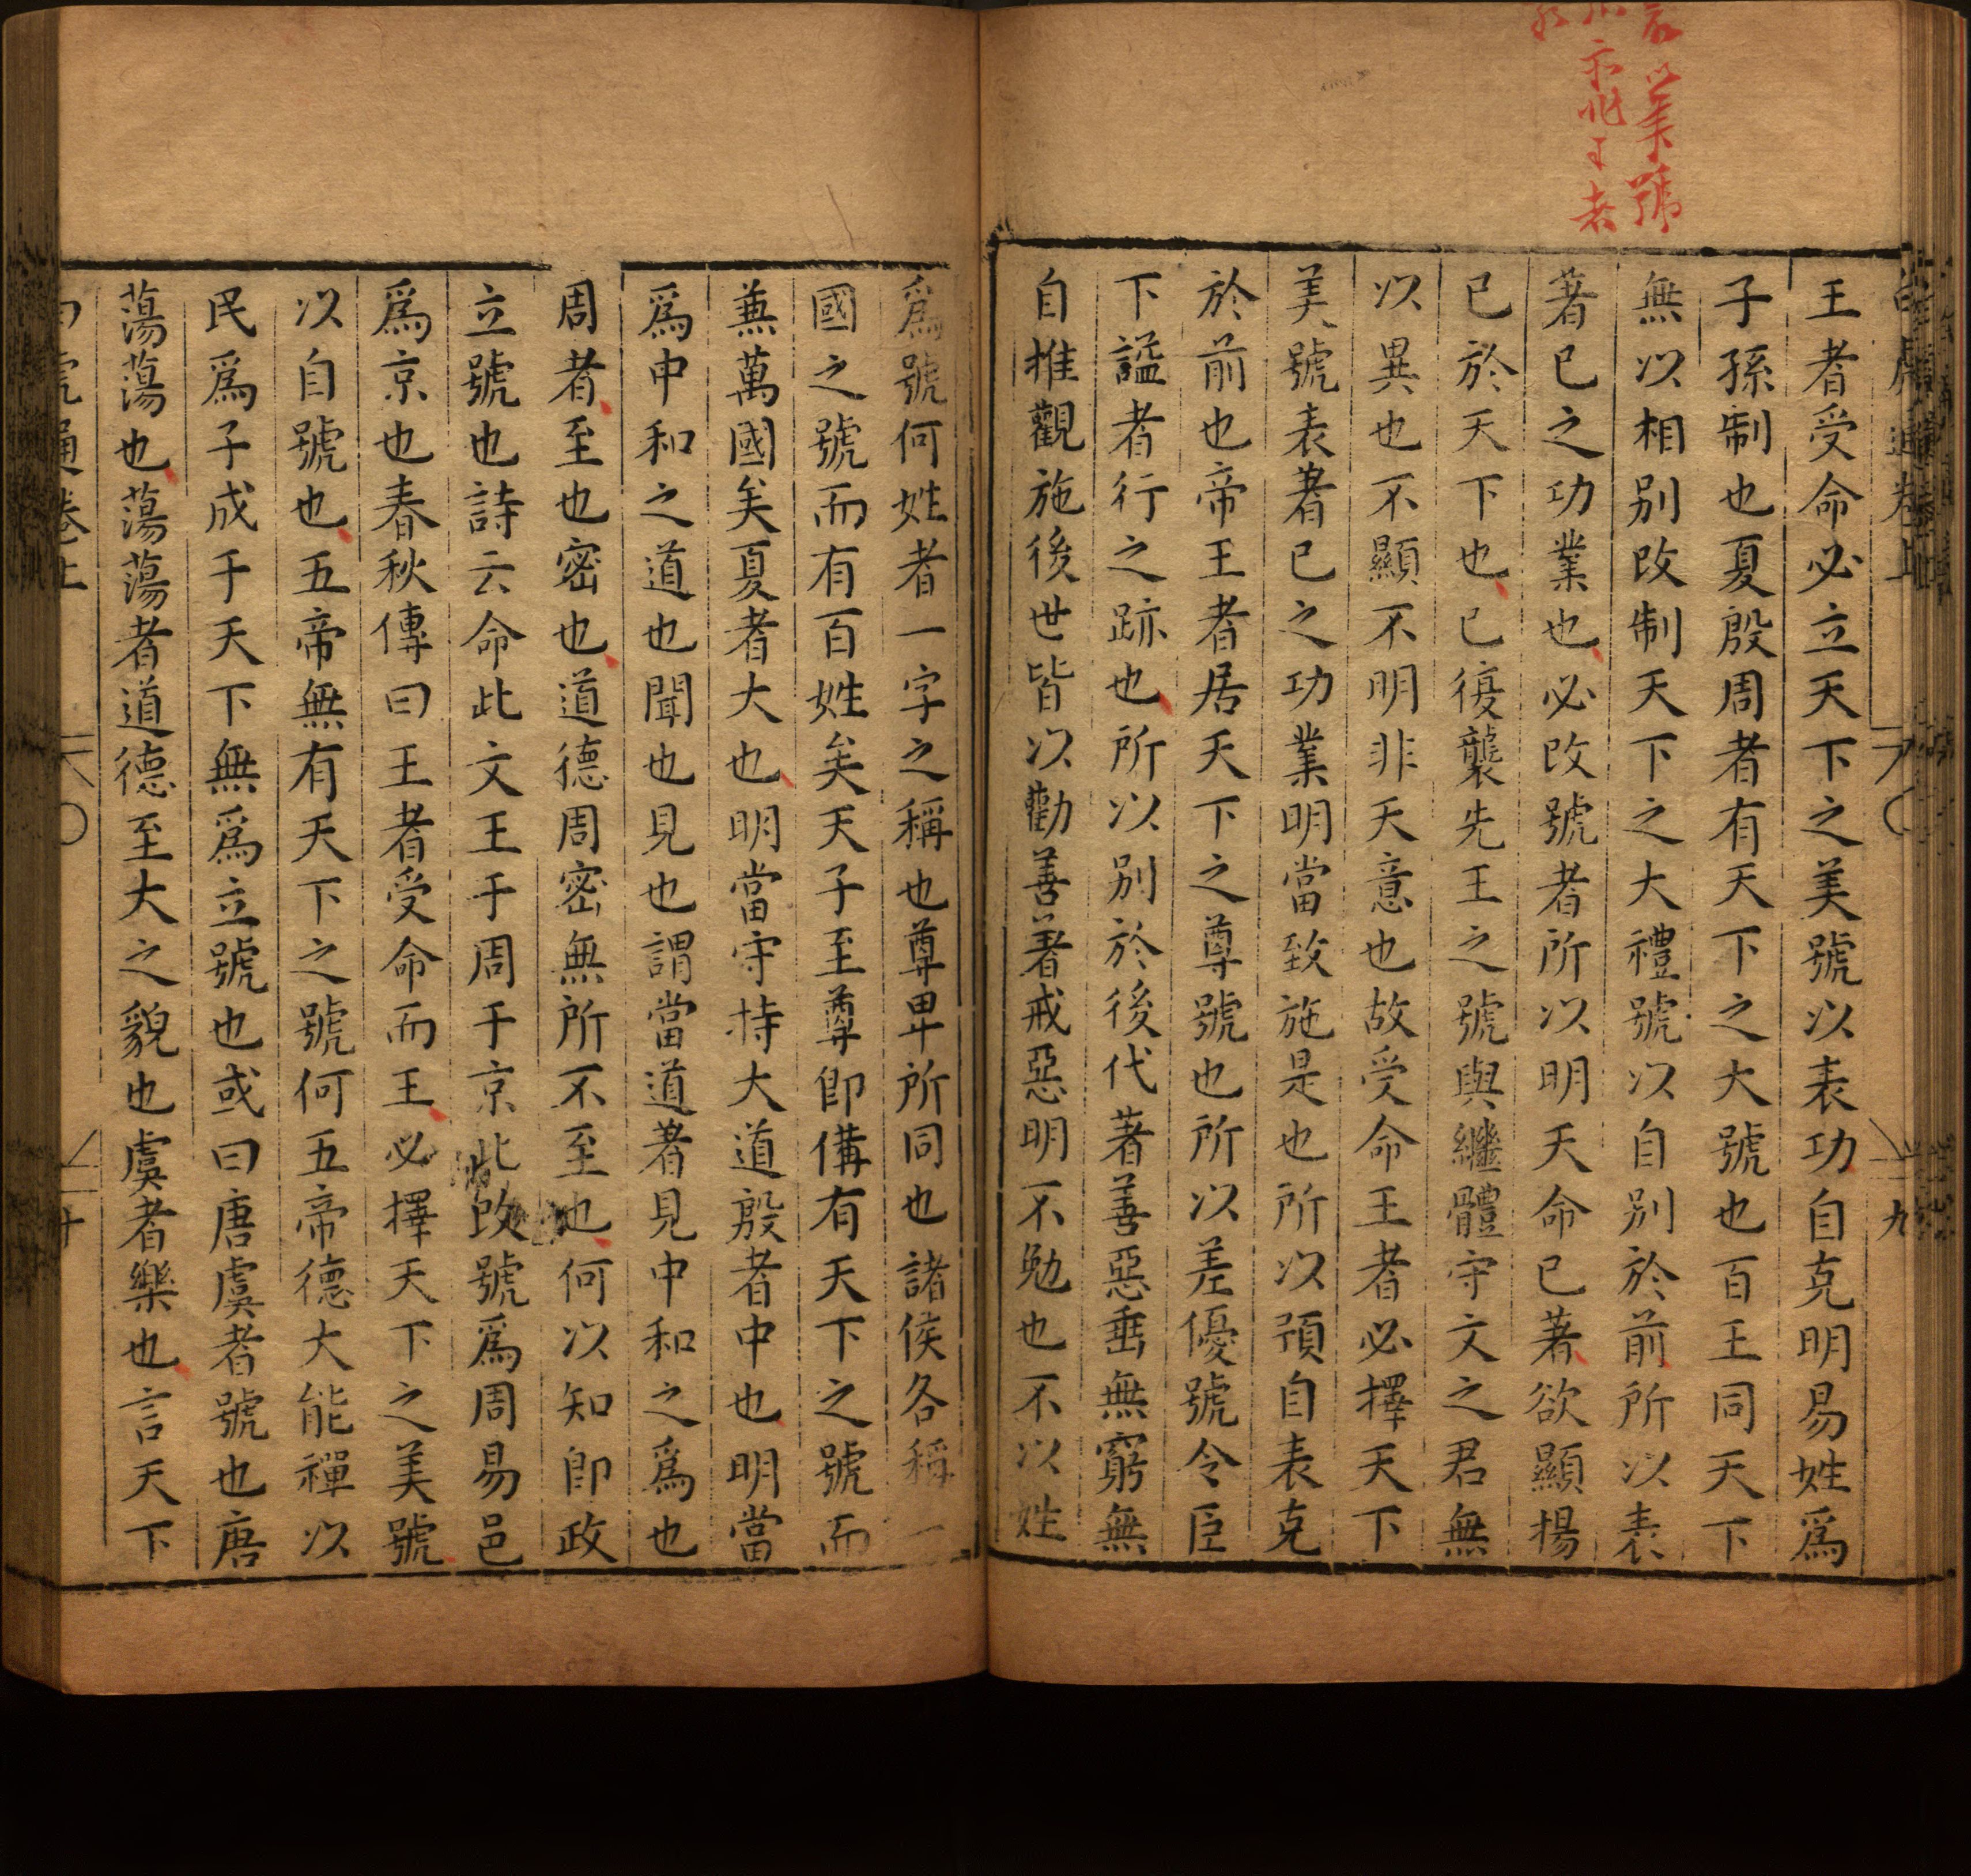 王者受命必立天下之美號以表功自克明易姓爲
子孫制也夏殷周者有天下之大號也百王同天下
無以相别改制天下之大禮號以自别於前所以表
著已之功業也必改號者所以明天命已著欲顯揚
已於天下也已復襲先王之號與繼體守文之君無
以異也不顯不明非天意也故受命王者必擇天下
美號表著已之功業明當致施是也所以預自表克
於前也帝王者居天下之尊號也所以差優號令臣
下謚者行之跡也所以别於後代著善惡垂無窮無
自推觀施後世皆以勸善著戒惡明不勉也不以姓
爲號何姓者一字之稱也尊卑所同也諸侯各稱一
國之號而有百姓矣天子至尊即備有天下之號而
兼萬國矣夏者大也明當守持大道殷者中也明當
爲中和之道也聞也見也謂當道著見中和之爲也
周者至也密也道德周密無所不至也何以知即政
立號也詩云命此文王于周于京此改號爲周易邑
爲京也春秋傳曰王者受命而王必擇天下之美號
以自號也五帝無有天下之號何五帝德大能禪以
民爲子成于天下無爲立號也或曰唐虞者號也唐
蕩蕩也蕩蕩者道德至大之貌也虞者樂也言天下